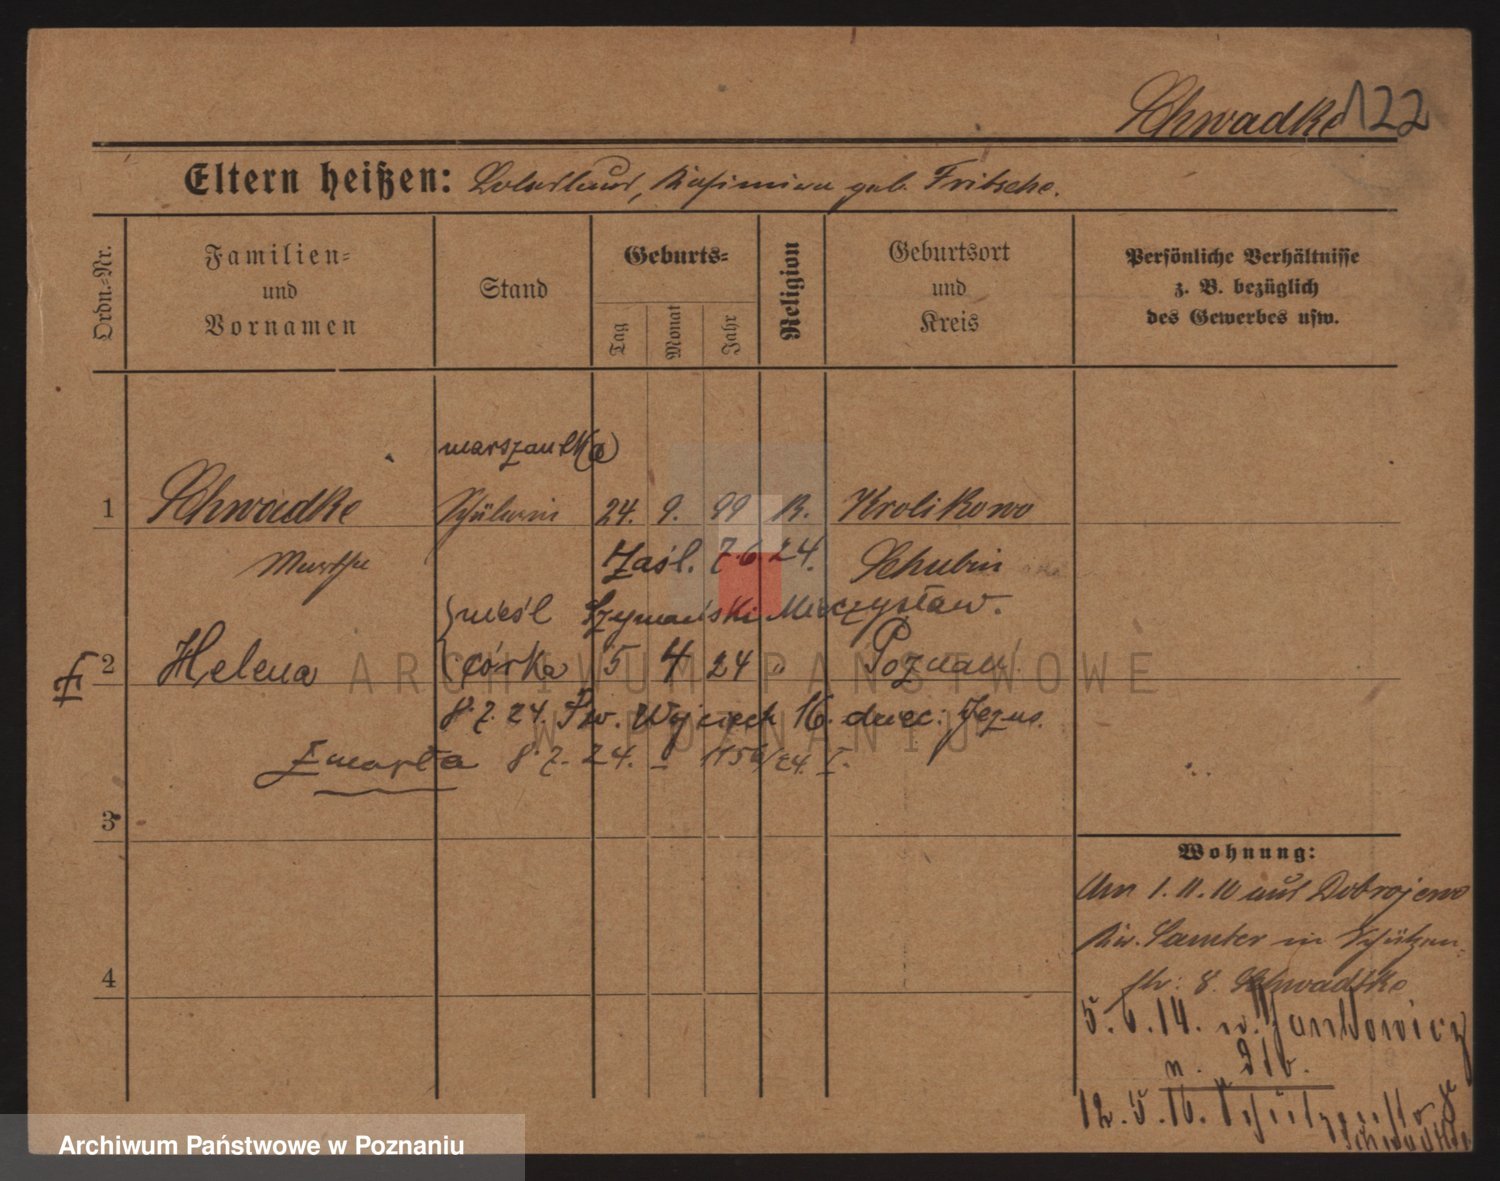 Schwadke 122
Eltern heißen: Kasimira geb. Fritsche.
Ordn.-Nr.
Familien-
und
Vornamen
Stand
Geburts-
Tag
Monat
Jahr
Religion
Geburtsort
und
Kreis
Persönliche Verhältnisse
z. B. bezüglich
des Gewerbes usw.
1 Schwadke Schülerin 24. 9. 99 K. Krolikowo
Zaśl. 7.6.24. Schubin
Szymański Mieczysław.
2 Helena córka 5 4 24 " Poznań
8.7.24. Św. Wojciech 16. Jezus.
Zmarła 8.7.24. I.
3
4
Wohnung:
Am 1.11.10 aus Dobrojewo
Kr. Samter in Schützen-
str: 8. Schwadtke
5.6.14. n. Jankowicz
n. 21b.
12.5.16. Schützenstr 8
Schwadtke
ARCHIWUM PAŃSTWOWE
W POZNANIU
Archiwum Państwowe w Poznaniu